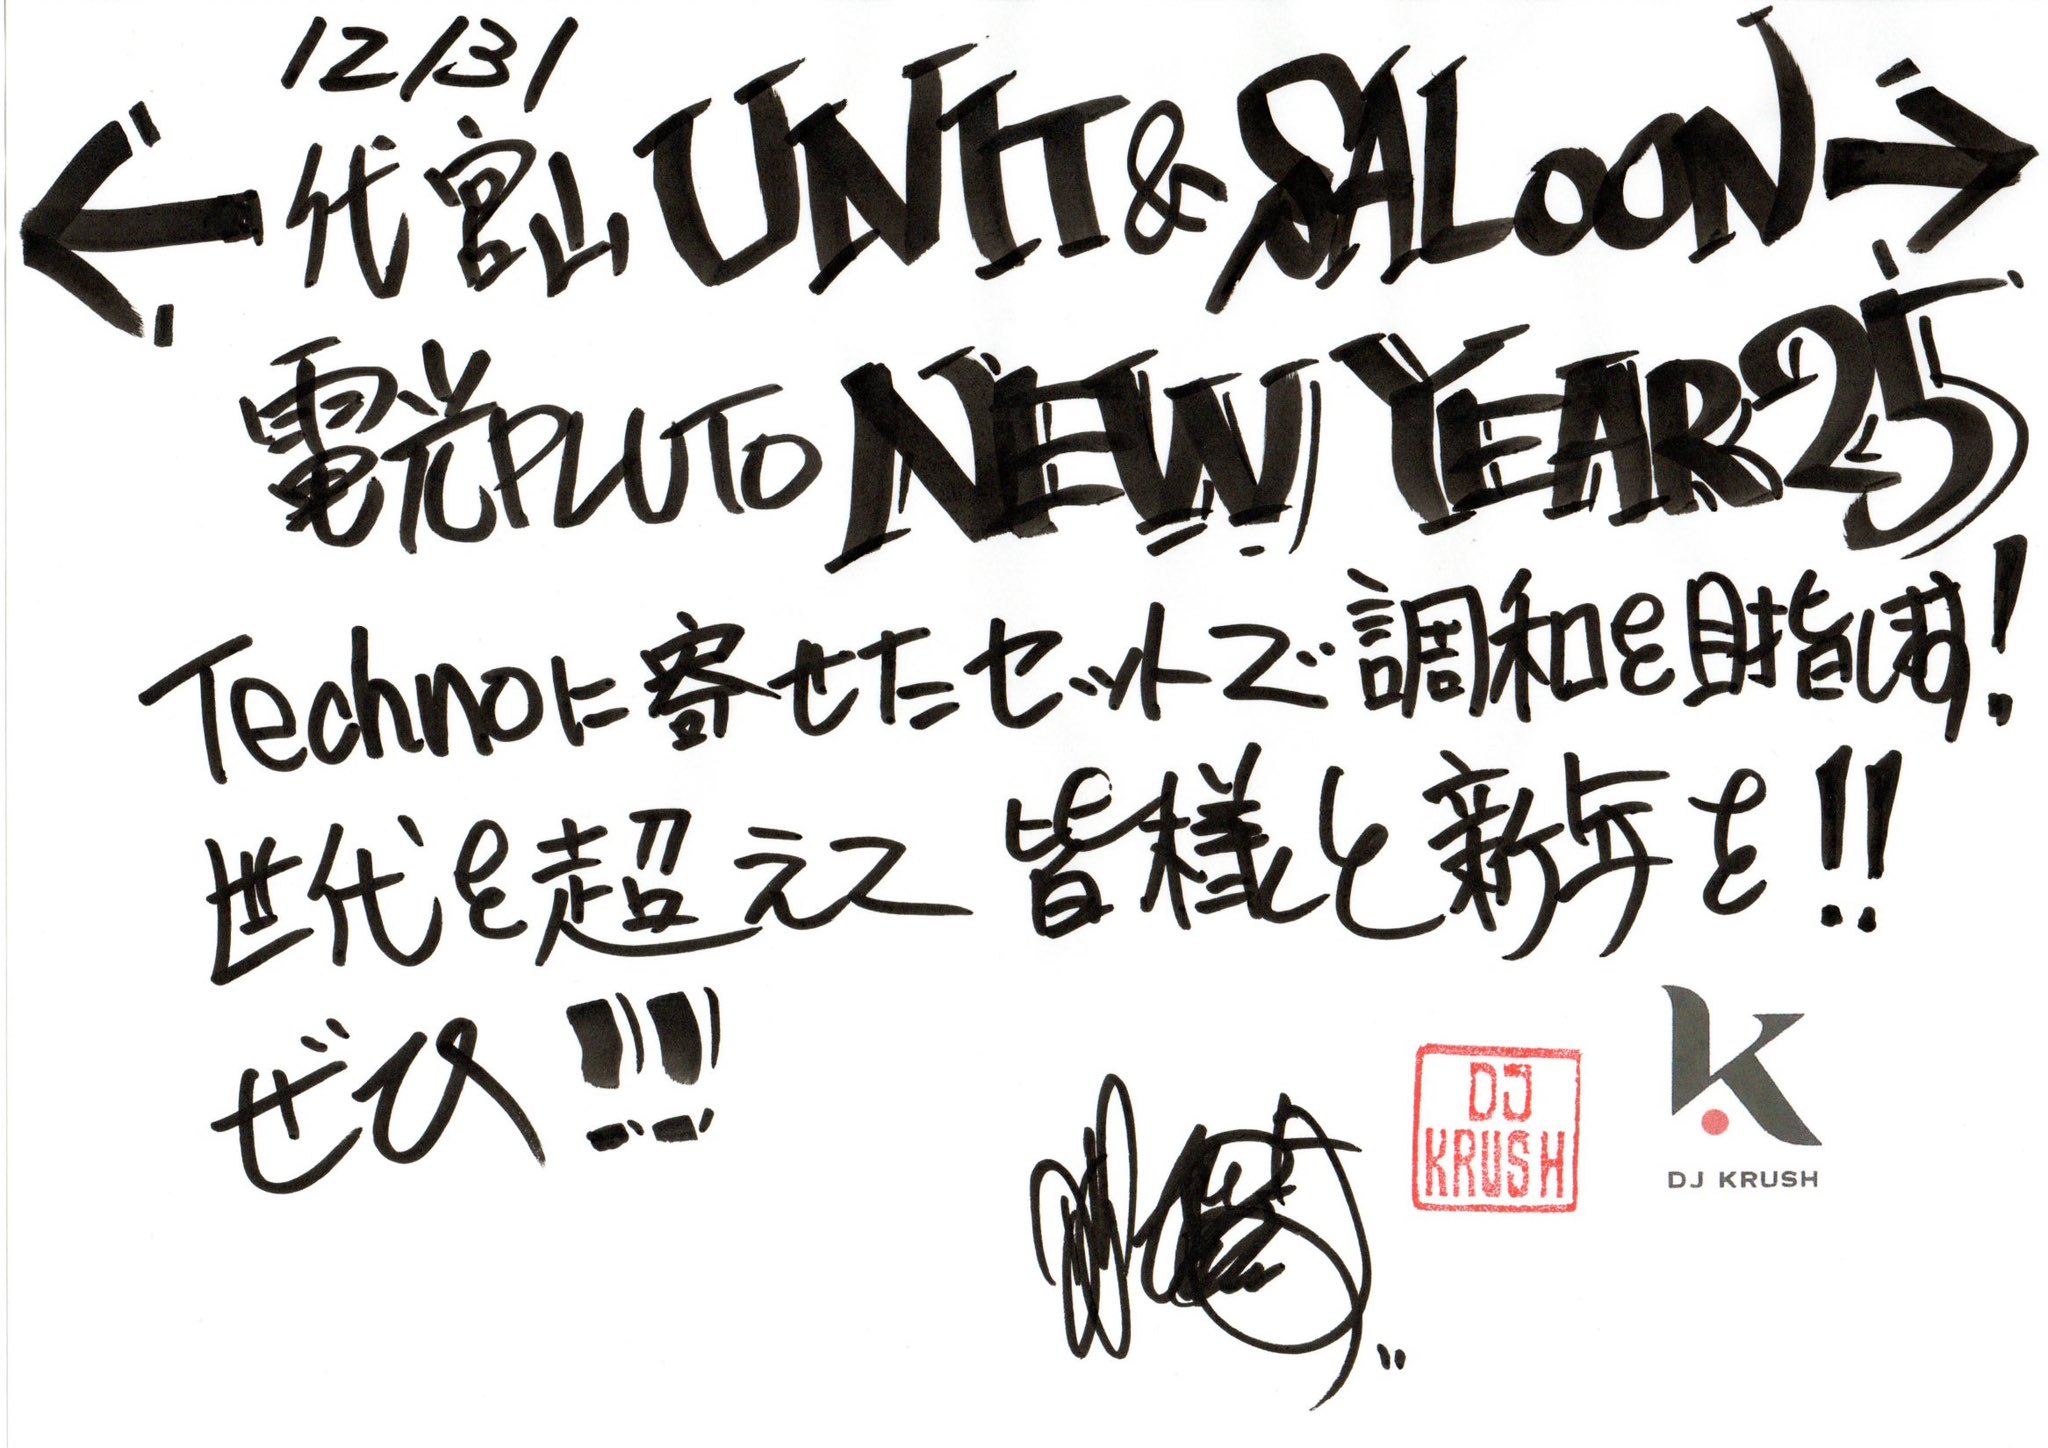 12/31
代官山 UNIT & SALOON
電光PLUTO NEW YEAR 25
Technoに寄せたセットで調和を目指します!
世代を超えて 皆様と新年を!!
ぜひ!!
DJ
KRUSH
K
DJ KRUSH